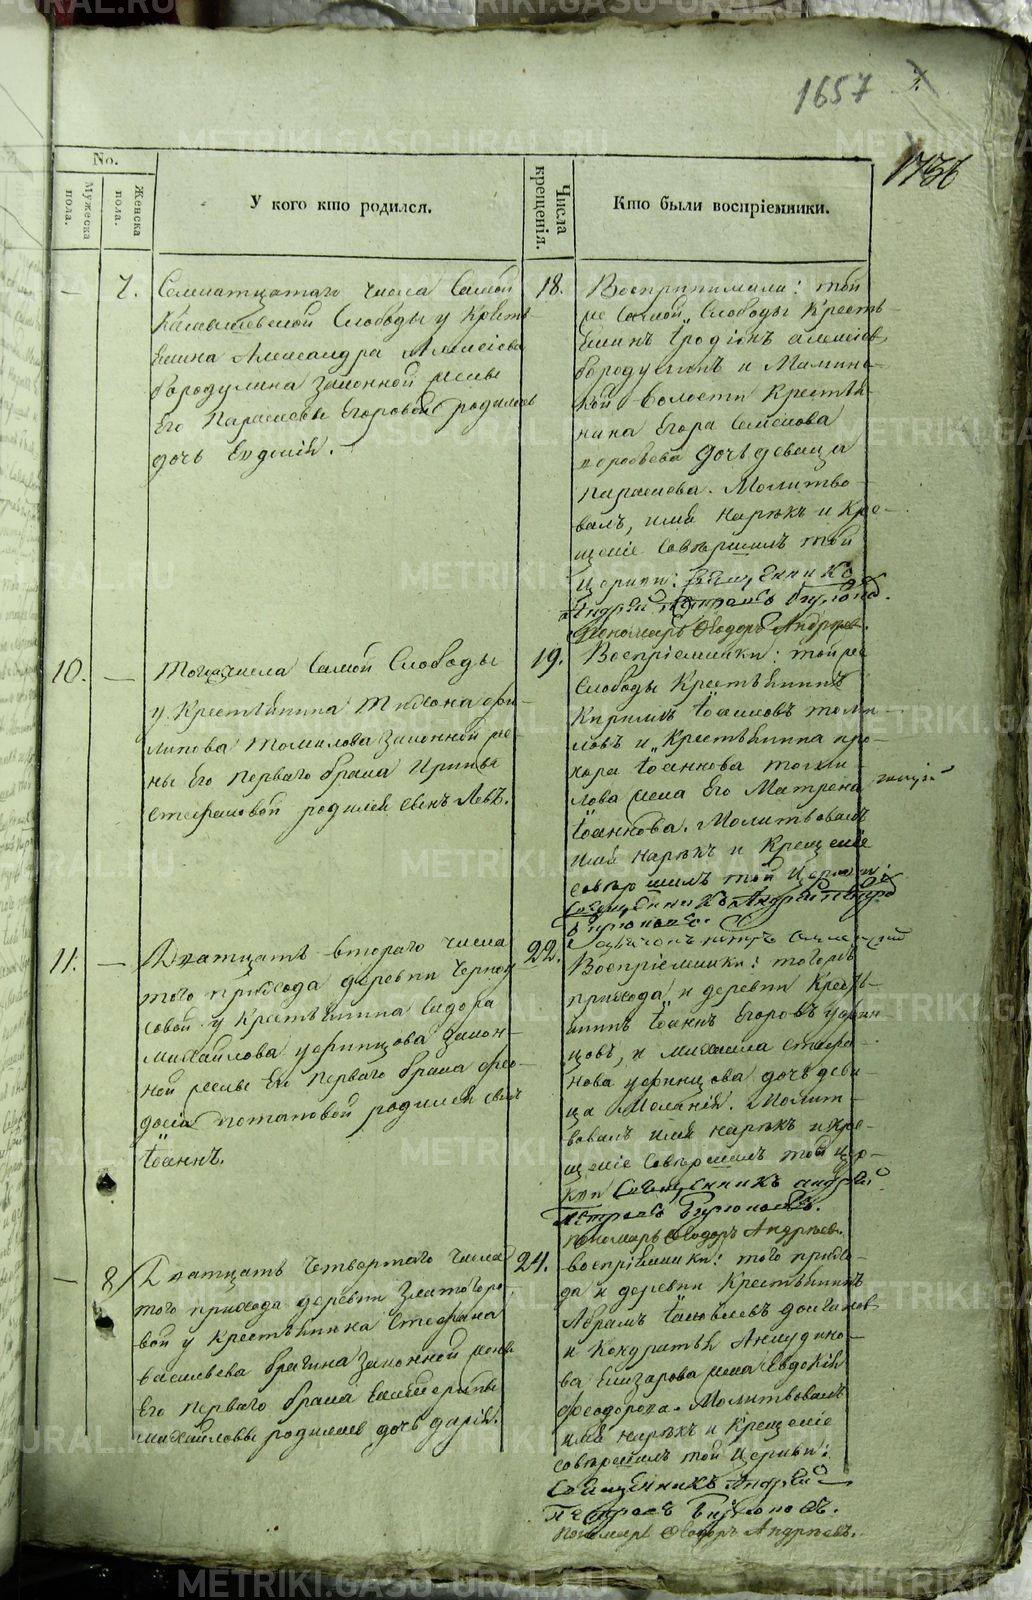 1657
1736
No.
Мужеска пола.
Женска пола.
У кого кто родился.
Числа крещенія.
Кто были воспріемники.
7.
Семнатцатаго числа самой
слободы у крестья
нина Александра Алексіева
бородулина законной жены
Его Параскевы Егоровой родилась
дочь Евдокія.
18.
Воспринимали: той
же самой слободы Кресть
янинъ Іродіонъ алексіевъ
бородулинъ и Мамин
ской волости Крестья
нина Егора Семенова
воробьева дочь девица
параскева. Молитво
валъ, имя нарѣкъ и кре
щеніе совершилъ той
церкви: священникъ
Андрей петровъ
Пономарь Ѳеодоръ Андреев.
10.
Тогожъ числа самой Слободы
у Крестьянина Тихона фи
липова Томилова законной же
ны Его перваго брака Ирины
стефановой родился сынъ Левъ.
19.
Воспріемники: той же
слободы Крестьянинъ
Кирилъ Іоакимовъ томи
ловъ и Крестьянина про
хора Іоаннова томи
лова жена Его Матрена
Іоаннова. Молитвовалъ
имя нарѣкъ и Крещеніе
совершилъ той Церкви:
священникъ Андрей петров
11.
Дватцать втораго числа
того прихода деревни Черно
совой у Крестьянина Сидора
михайлова уфинцова закон
ной жены Его перваго брака фео
досіи потаповой родился сынъ
Іоаннъ.
22.
Воспріемники: того же
прихода и деревни Кресть
янинъ Іоаннъ Егоровъ уфин
цовъ, и михаила стефа
нова уфинцова дочь деви
ца Меланія. Молит
вовалъ имя нарѣкъ и кре
щеніе совершилъ той цер
кви священникъ андрей
петровъ Бирюковъ.
пономарь Ѳеодоръ Андреевъ.
8
Дватцать четвертаго числа
того прихода деревни Златогоро
вой у Крестьянина Стефана
васильева брагина законной жены
Его перваго брака Екатерины
михайловы родилась дочь дарія.
24.
воспріемники: того прихо
да и деревни Крестьянинъ
Абрамъ Іаковлевъ
и Кондратія Анкудино
ва Елизарова жена Евдокія
феодорова. Молитвовалъ
имя нарѣкъ и Крещеніе
совершилъ той Церкви:
Священникъ Андрей
Петровъ Бирюковъ.
Пономарь Ѳеодоръ Андреевъ.
METRIKI.GASO-URAL.RU